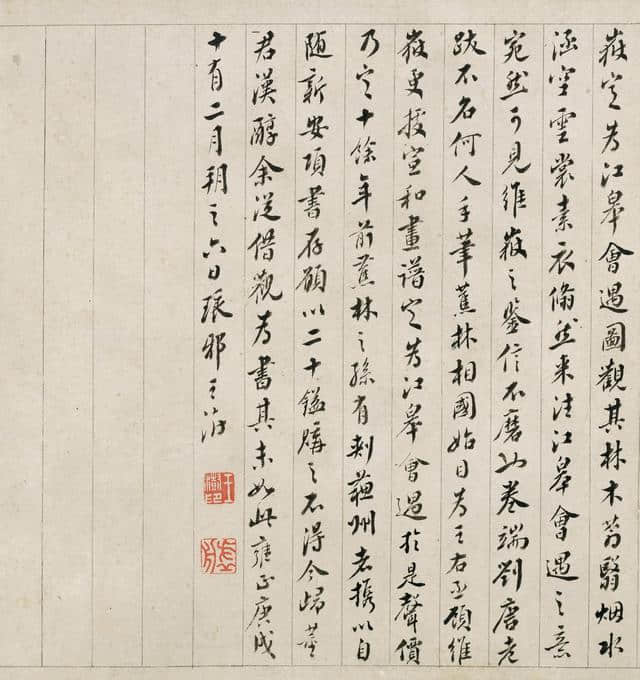 嶽定为江皋會遇圖觀其林木蓊翳烟水
涵空雲裳素衣翛然来往江皋會遇之意
宛然可見維嶽之鑒信不磨也卷端劉唐老
跋不名何人手筆蕉林相國始目为王右丞顧維
嶽更援宣和畫譜定为江皋會遇於是聲價
乃定十餘年前蕉林之孫有刺蘇州者攜以自
随新安項書存願以二十鎰購之不得今歸董
君漢醇余從借觀为書其末如此雍正庚戌
十有二月朔之六日琅邪王澍
王澍印
虚舟